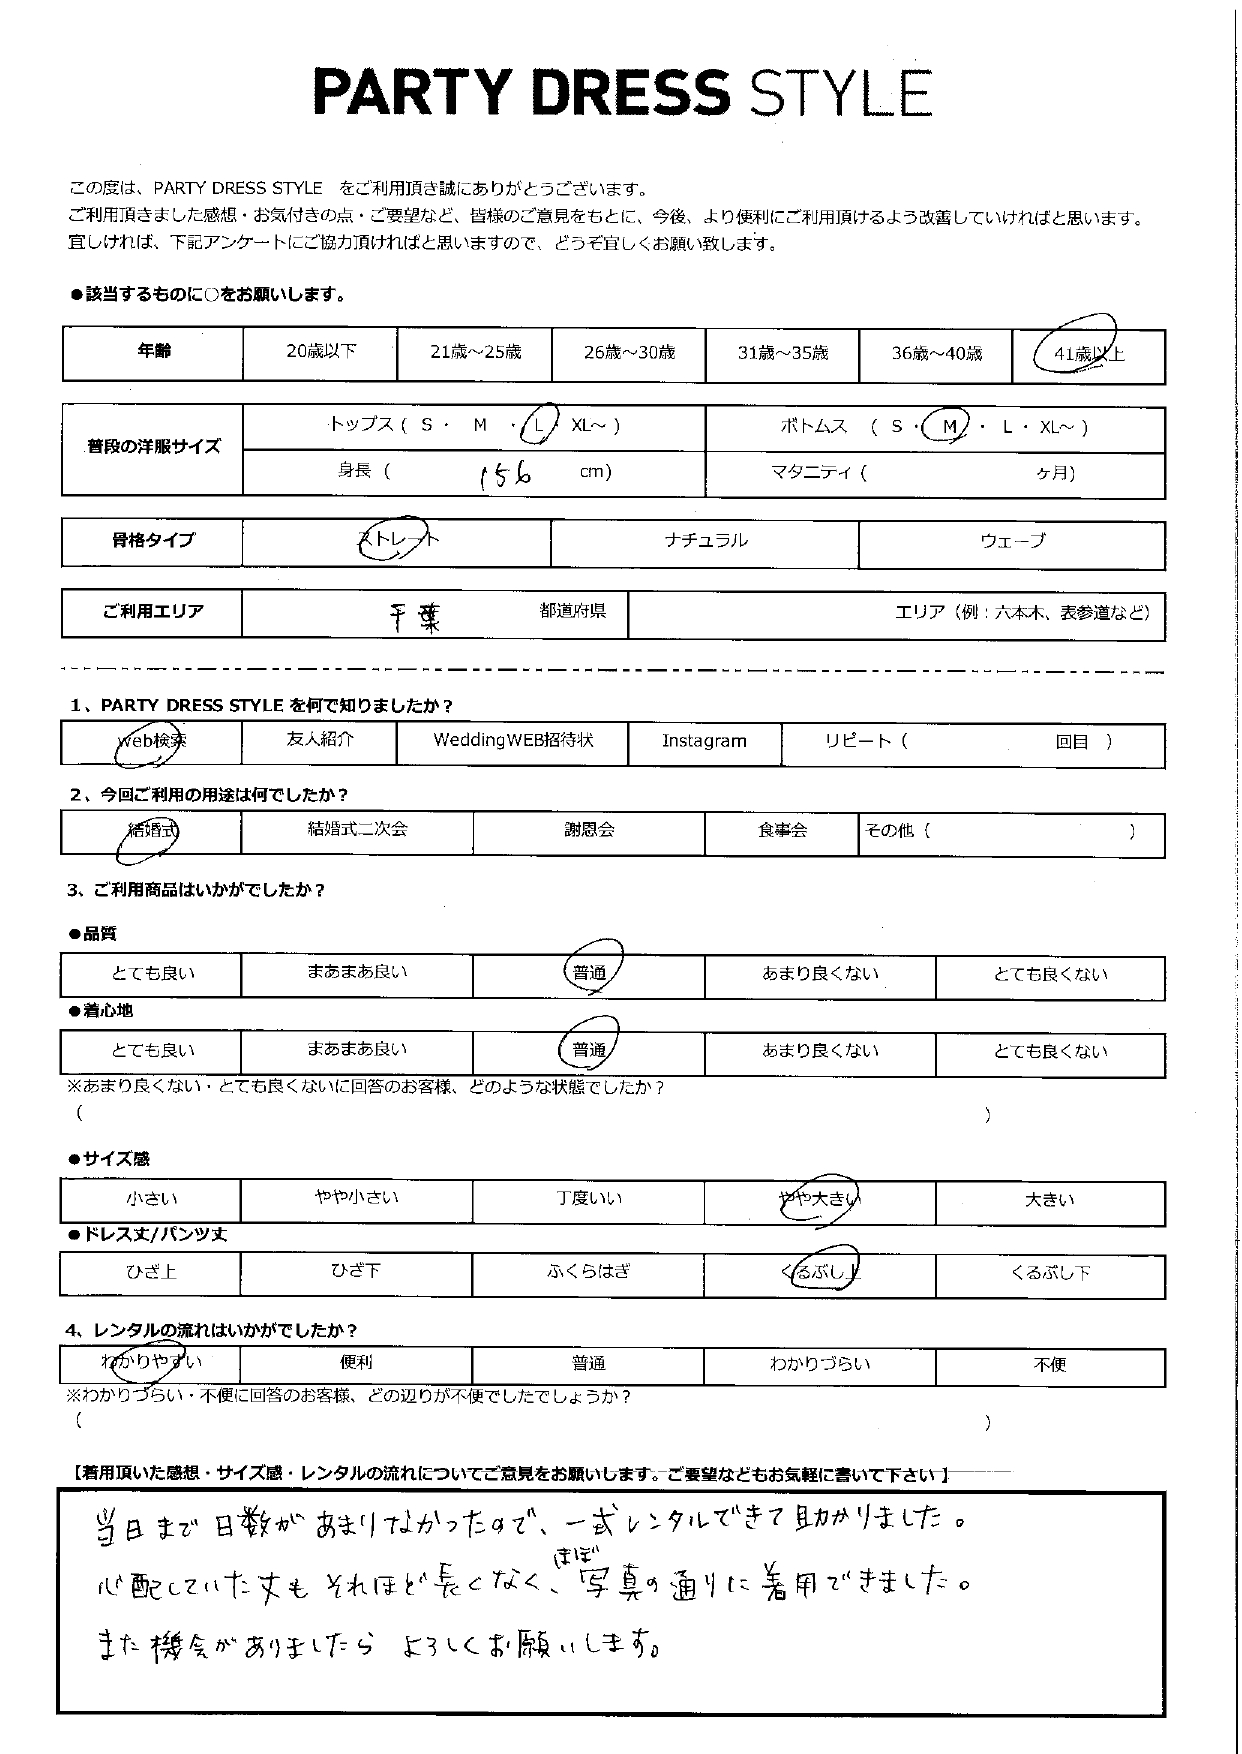 PARTY DRESS STYLE
この度は、PARTY DRESS STYLE をご利用頂き誠にありがとうございます。
ご利用頂きました感想・お気付きの点・ご要望など、皆様のご意見をもとに、今後、より便利にご利用頂けるよう改善していければと思います。
宜しければ、下記アンケートにご協力頂ければと思いますので、どうぞ宜しくお願い致します。
●該当するものに○をお願いします。
年齢 20歳以下 21歳～25歳 26歳～30歳 31歳～35歳 36歳～40歳 41歳以上
普段の洋服サイズ
トップス ( S ・ M ・ L XL～ ) ボトムス ( S ・ M ・ L ・ XL～ )
身長 ( 156 cm) マタニティ ( ヶ月)
骨格タイプ ストレート ナチュラル ウェーブ
ご利用エリア 千葉 都道府県 エリア（例：六本木、表参道など）
1、PARTY DRESS STYLE を何で知りましたか？
web検索 友人紹介 WeddingWEB招待状 Instagram リピート ( 回目 )
2、今回ご利用の用途は何でしたか？
結婚式 結婚式二次会 謝恩会 食事会 その他 ( )
3、ご利用商品はいかがでしたか？
●品質
とても良い まあまあ良い 普通 あまり良くない とても良くない
●着心地
とても良い まあまあ良い 普通 あまり良くない とても良くない
※あまり良くない・とても良くないに回答のお客様、どのような状態でしたか？
( )
●サイズ感
小さい やや小さい 丁度いい やや大きい 大きい
●ドレス丈/パンツ丈
ひざ上 ひざ下 ふくらはぎ くるぶし上 くるぶし下
4、レンタルの流れはいかがでしたか？
わかりやすい 便利 普通 わかりづらい 不便
※わかりづらい・不便に回答のお客様、どの辺りが不便でしたでしょうか？
( )
【着用頂いた感想・サイズ感・レンタルの流れについてご意見をお願いします。ご要望などもお気軽に書いて下さい】
当日まで日数があまりなかったので、一式レンタルできて助かりました。
心配していた丈もそれほど長くなく、ほぼ写真の通りに着用できました。
また機会がありましたら よろしくお願いします。